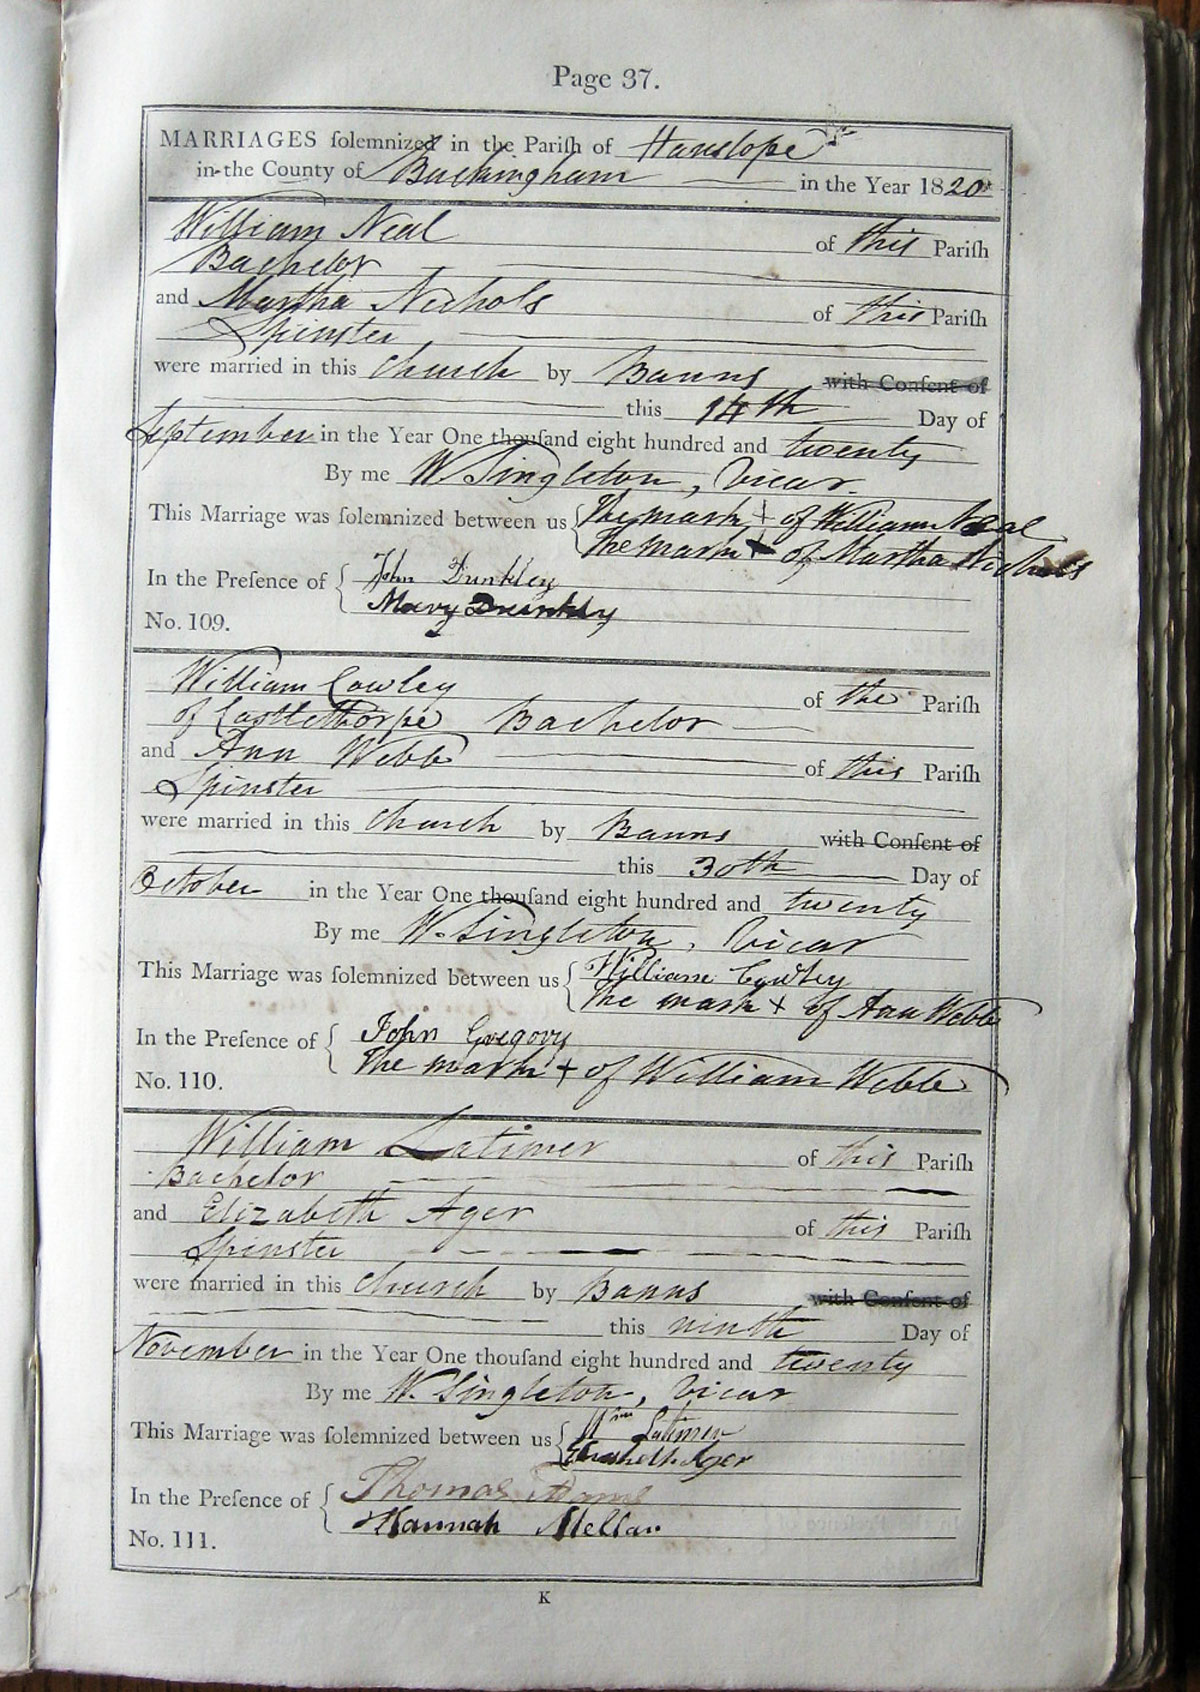 Page 37.
MARRIAGES ſolemnized in the Pariſh of Hanslope
in the County of Buckingham in the Year 1820
William Neal of this Pariſh
Bachelor
and Martha Nichols of this Pariſh
Spinster
were married in this Church by Banns with Conſent of
this 14th Day of
September in the Year One thouſand eight hundred and twenty
By me W Singleton, Vicar.
This Marriage was ſolemnized between us The mark + of William Neal
The mark + of Martha Nichols
In the Preſence of John Dunkley
Mary Dunkly
No. 109.
William Cowley of the Pariſh
of Castlethorpe Bachelor
and Ann Webb of this Pariſh
Spinster
were married in this Church by Banns with Conſent of
this 30th Day of
October in the Year One thouſand eight hundred and twenty
By me W. Singleton, Vicar
This Marriage was ſolemnized between us William Cowley
The mark + of Ann Webb
In the Preſence of John Gregory
The mark + of William Webb
No. 110.
William Latimer of this Pariſh
Bachelor
and Elizabeth Ager of this Pariſh
Spinster
were married in this Church by Banns with Conſent of
this ninth Day of
November in the Year One thouſand eight hundred and twenty
By me W. Singleton, Vicar
This Marriage was ſolemnized between us Wm Latimer
Elizabeth Ager
In the Preſence of Thomas
Hannah Mellar
No. 111.
K